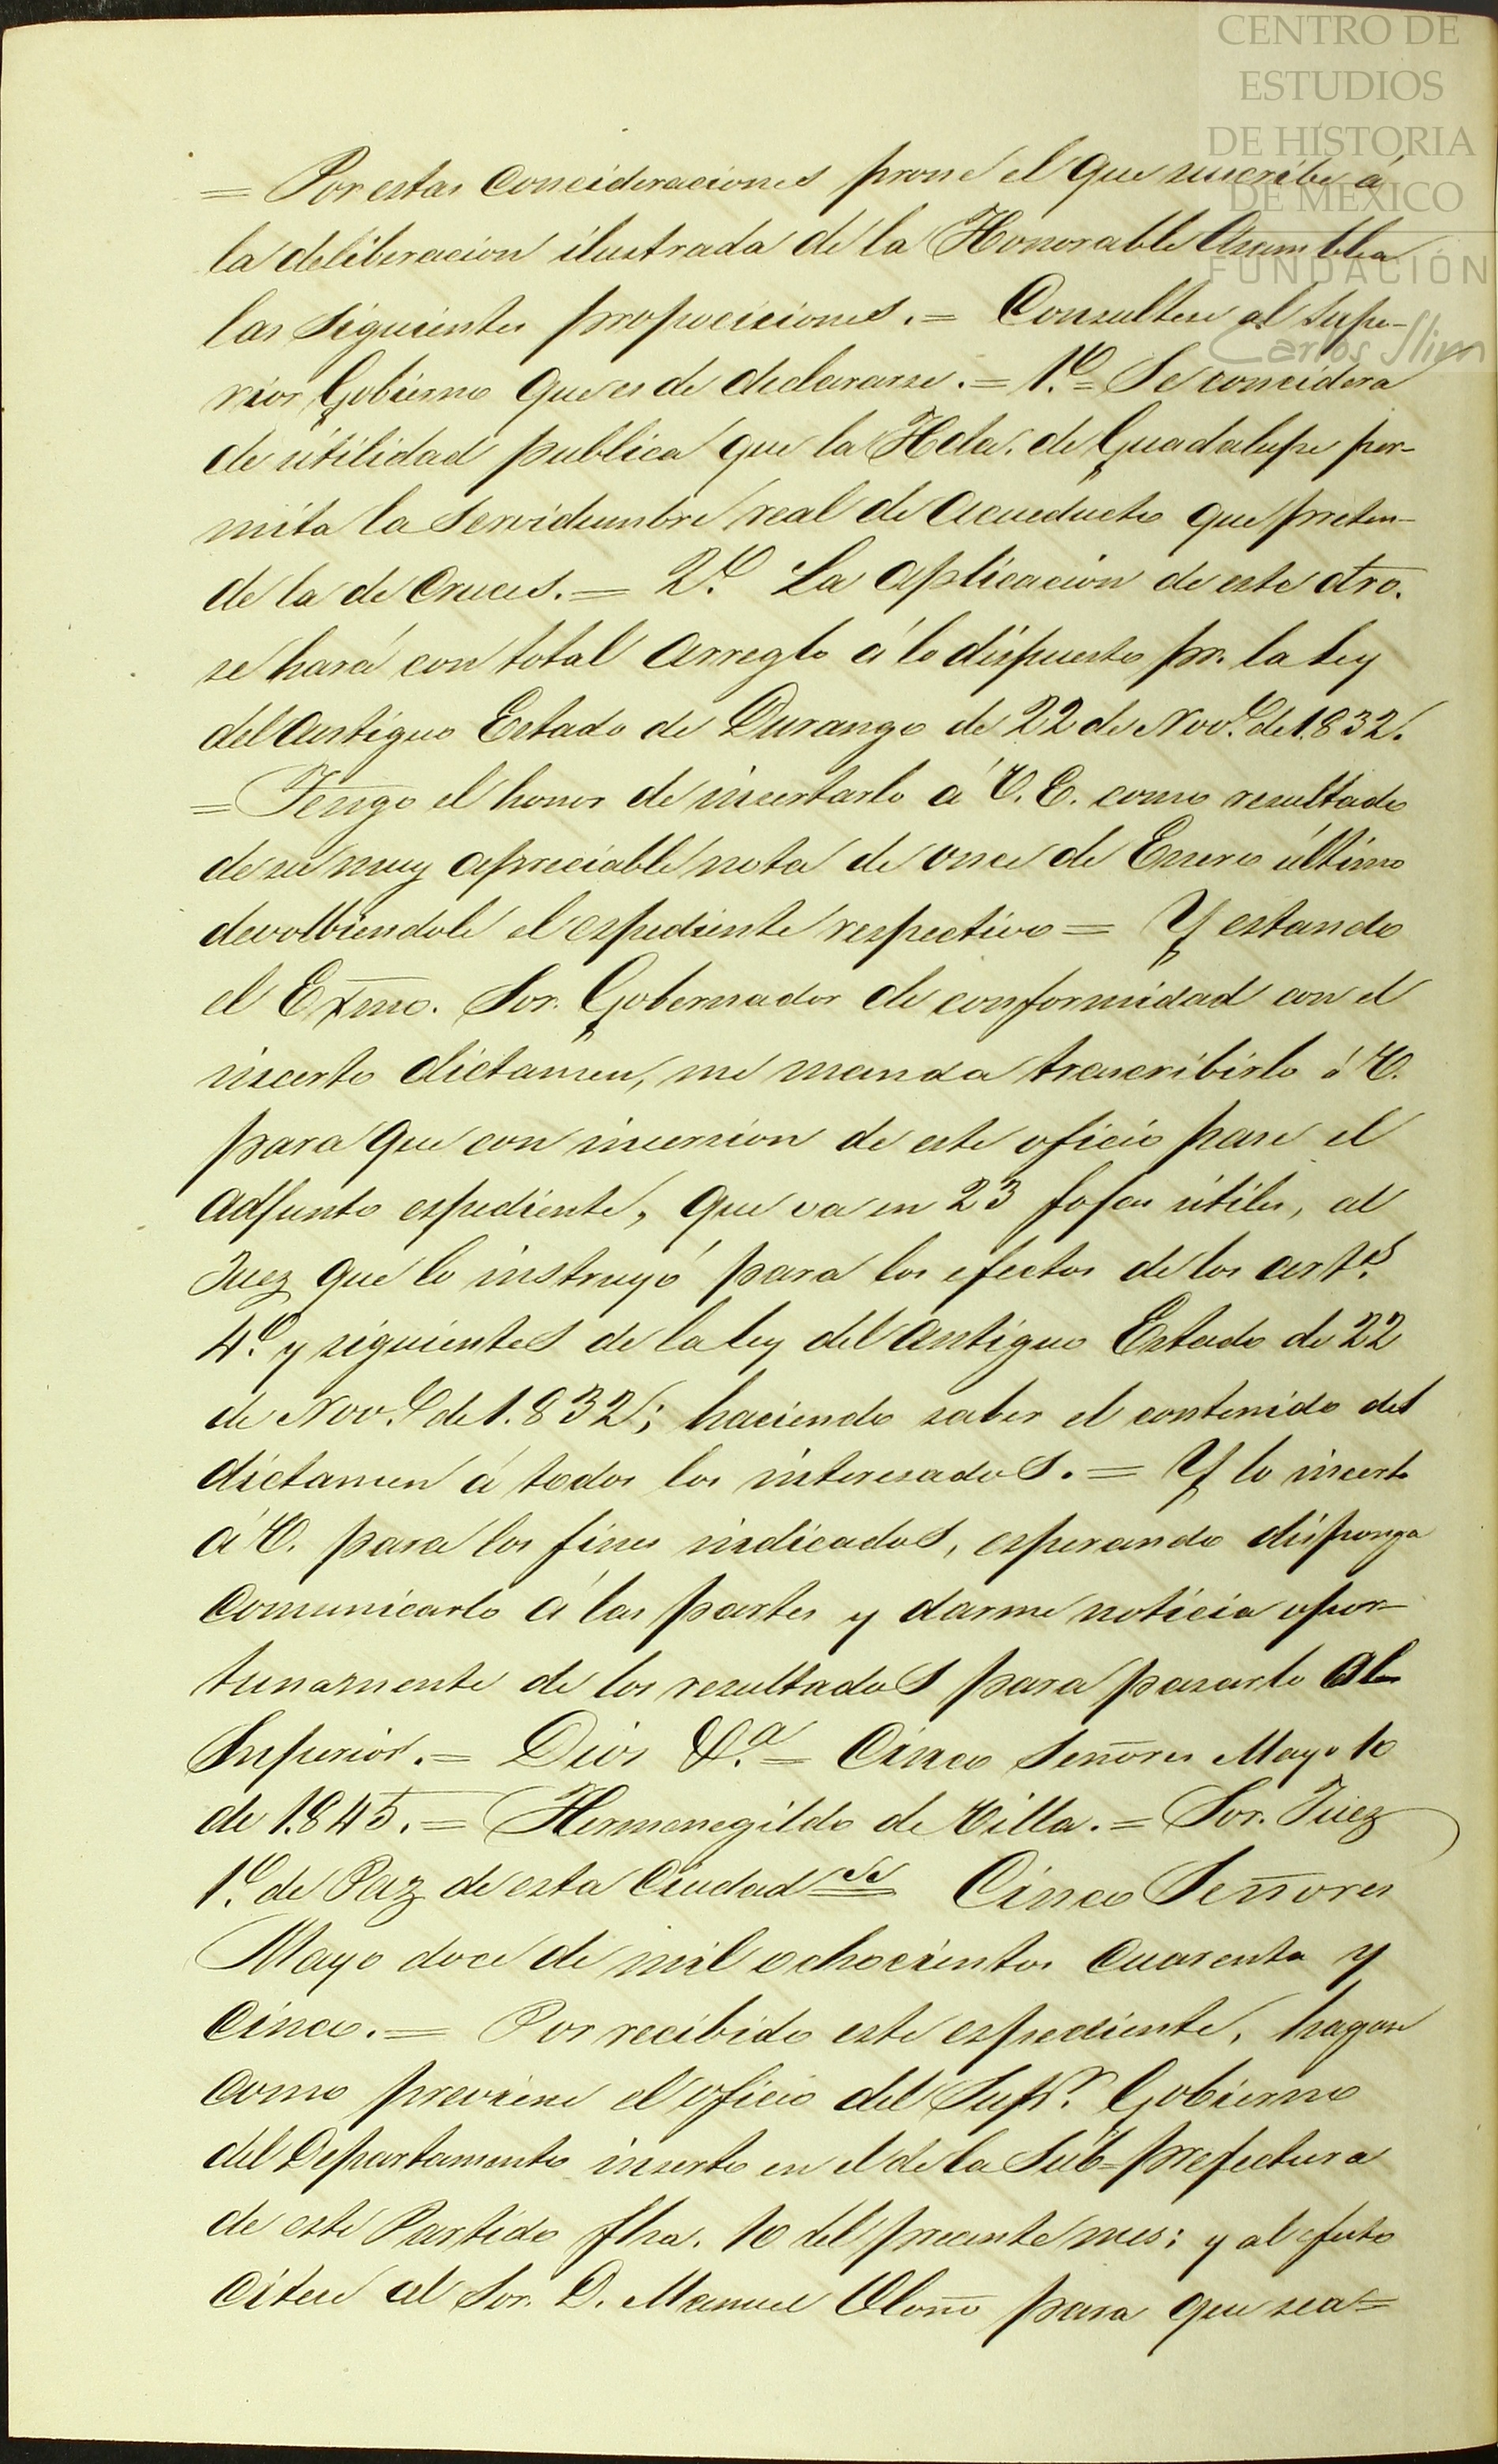 CENTRO DE
ESTUDIOS
DE HISTORIA
DE MÉXICO
FUNDACIÓN
Carlos Slim
= Por estas concideraciones prone el que suscribe á
la deliberacion ilustrada de la Honorable Asamblea
las siguientes propociciones. = Consultese al supe-
rior Gobierno que es de declararse. = 1.º = Se concidera
de utilidad publica que la Hda. de Guadalupe per-
mita la servidumbre real de acueducto que preten-
de la de Cruces. = 2.º La aplicacion de este dro.
se hará con total arreglo á lo dispuesto pr. la ley
del antiguo Estado de Durango de 22 de Nov.e de 1.832.
= Tengo el honor de insertarlo á V. E. como resultado
de su muy apreciable nota de once de Enero último
devolbiendole el espediente respectivo = Y estando
el Exmo. Sor. Gobernador de conformidad con el
incerto dictamen, me manda trascribirlo á V.
para que con incersion de este oficio pase el
adjunto espediente, que va en 23 fojas utiles, al
Juez que lo instruyó para los efectos de los art.s
4.º y siguientes de la ley del antiguo Estado de 22
de Nov.e de 1.832; haciendo saber el contenido del
dictamen á todos los interesados. = Y lo incerto
á V. para los fines indicados, esperando disponga
comunicarlo á las partes y darme noticia opor-
tunamente de los resultados para pasarlo al
Superior. = Dios &.a = Cinco Señores Mayo 10
de 1.845. = Hermenegildo de Villa. = Sor. Juez
1.º de Paz de esta Ciudad = Cinco Señores
Mayo doce de mil ochocientos cuarenta y
cinco. = Por recibido este espediente, hagase
como previene el oficio del Sup.r Gobierno
del Departamento inserto en el de la Sub-prefectura
de este Partido fha. 10 del precente mes; y al efecto
citese al Sor. D. Manuel para que sea=